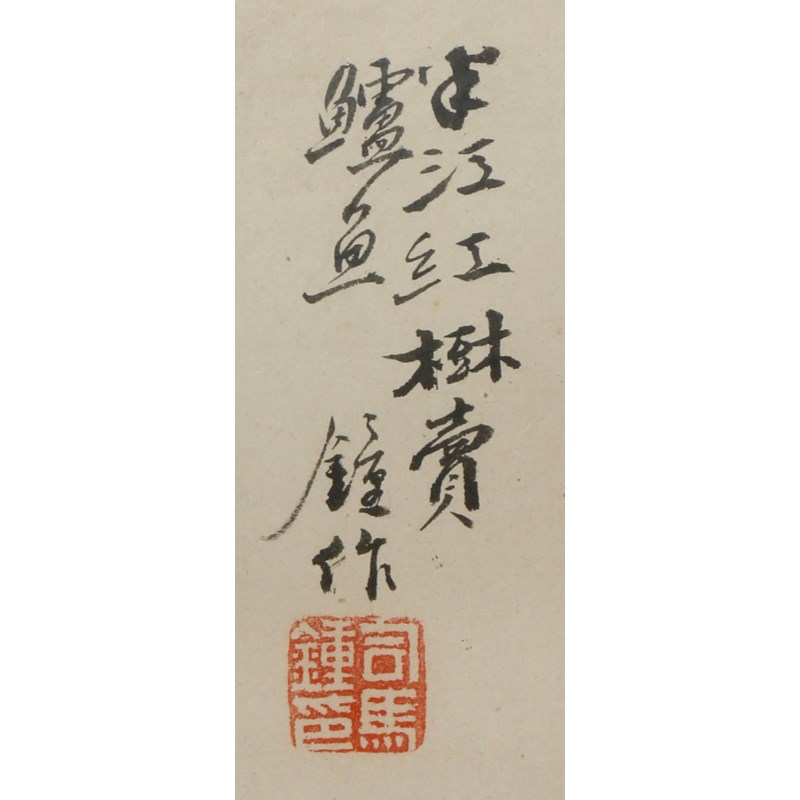 半江紅樹賣
鱸魚
鍾作
司馬
鍾印